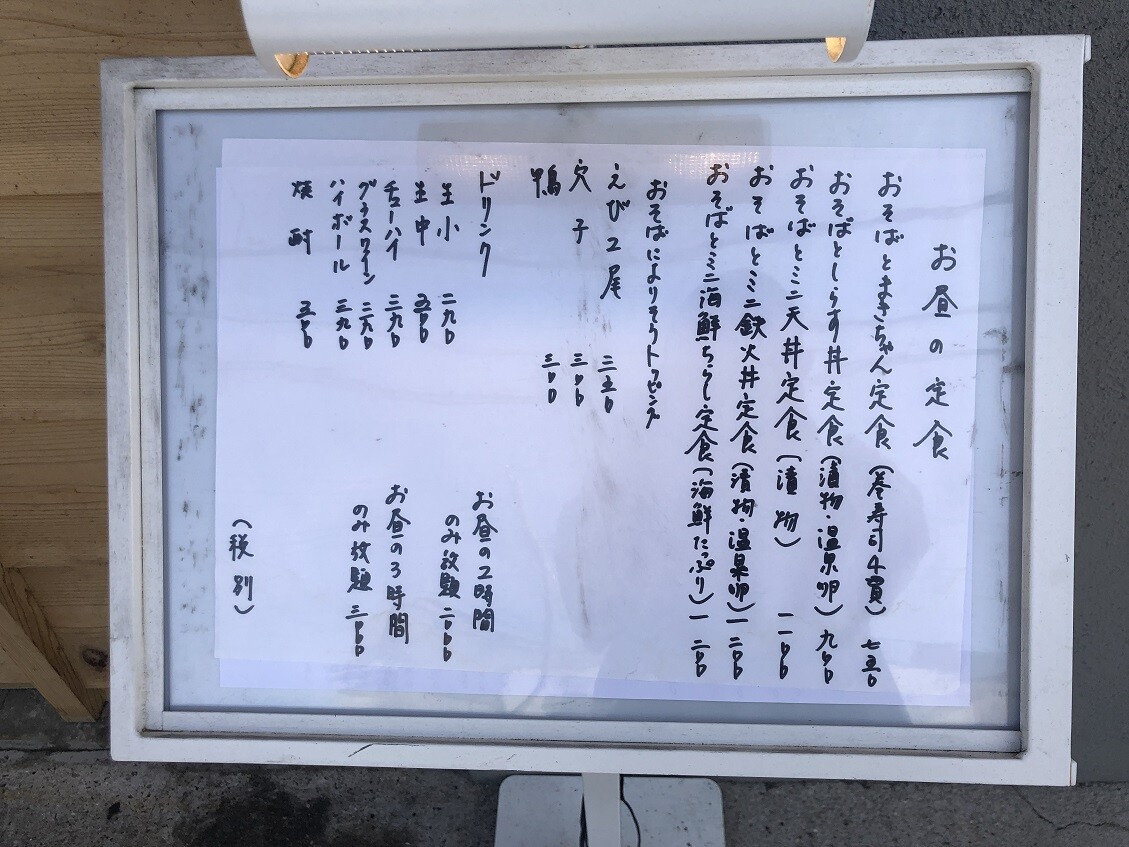 お昼の定食
おそばとまきちゃん定食(巻寿司4貫)七五〇
おそばとしらす丼定食(漬物・温泉卵)九〇〇
おそばとミニ天丼定食(漬物)一一〇〇
おそばとミニ鉄火丼定食(漬物・温泉卵)一二〇〇
おそばとミニ海鮮ちらし定食(海鮮たっぷり)一二〇〇
おそばによりそうトッピング
えび2尾 三五〇
穴子 三〇〇
鴨 三〇〇
ドリンク
生小 二九〇
生中 五〇〇
チューハイ 三九〇
グラスワイン 二九〇
ハイボール 三九〇
焼酎 五〇〇
お昼の2時間
のみ放題 二〇〇〇
お昼の3時間
のみ放題 三〇〇〇
(税別)